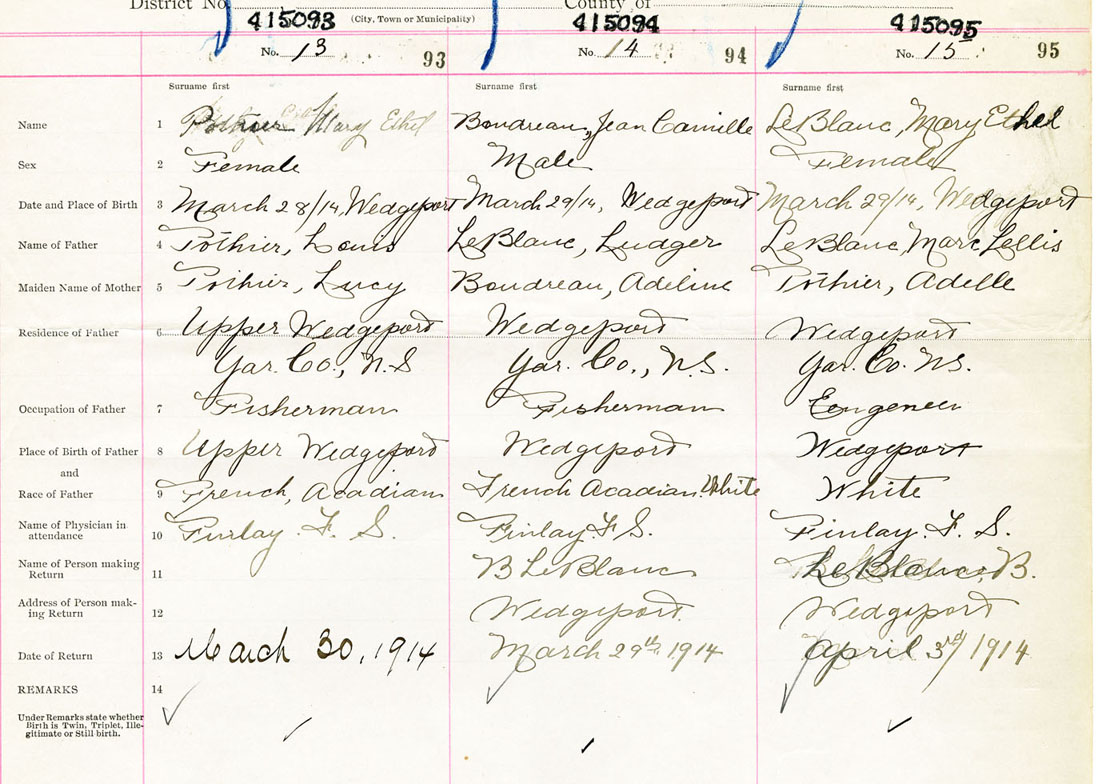 District No. County of
415093 (City, Town or Municipality) 415094 415095
No. 13 93 No. 14 94 No. 15 95
Surname first Surname first Surname first
Name 1 Pothier Mary Ethel Boudreau, Jean Camille LeBlanc, Mary Ethel
Sex 2 Female Male Female
Date and Place of Birth 3 March 28/14, Wedgeport March 29/14, Wedgeport March 29/14, Wedgeport
Name of Father 4 Pothier, Louis LeBlanc, Ludger LeBlanc, Marc Lellis
Maiden Name of Mother 5 Pothier, Lucy Boudreau, Adeline Pothier, Adelle
Residence of Father 6 Upper Wedgeport Wedgeport Wedgeport
Yar. Co., N.S Yar. Co., N.S. Yar. Co. N.S.
Occupation of Father 7 Fisherman Fisherman Eengeneer
Place of Birth of Father 8 Upper Wedgeport Wedgeport Wedgeport
and
Race of Father 9 French, Acadian French Acadian. White White
Name of Physician in
attendance 10 Finlay. F. S. Finlay. F S. Finlay. F. S.
Name of Person making
Return 11 B LeBlanc LeBlanc, B.
Address of Person mak-
ing Return 12 Wedgeport. Wedgeport
Date of Return 13 March 30, 1914 March 29th, 1914 April 3rd/1914
REMARKS 14
Under Remarks state whether
Birth is Twin, Triplet, Ille-
gitimate or Still-birth.